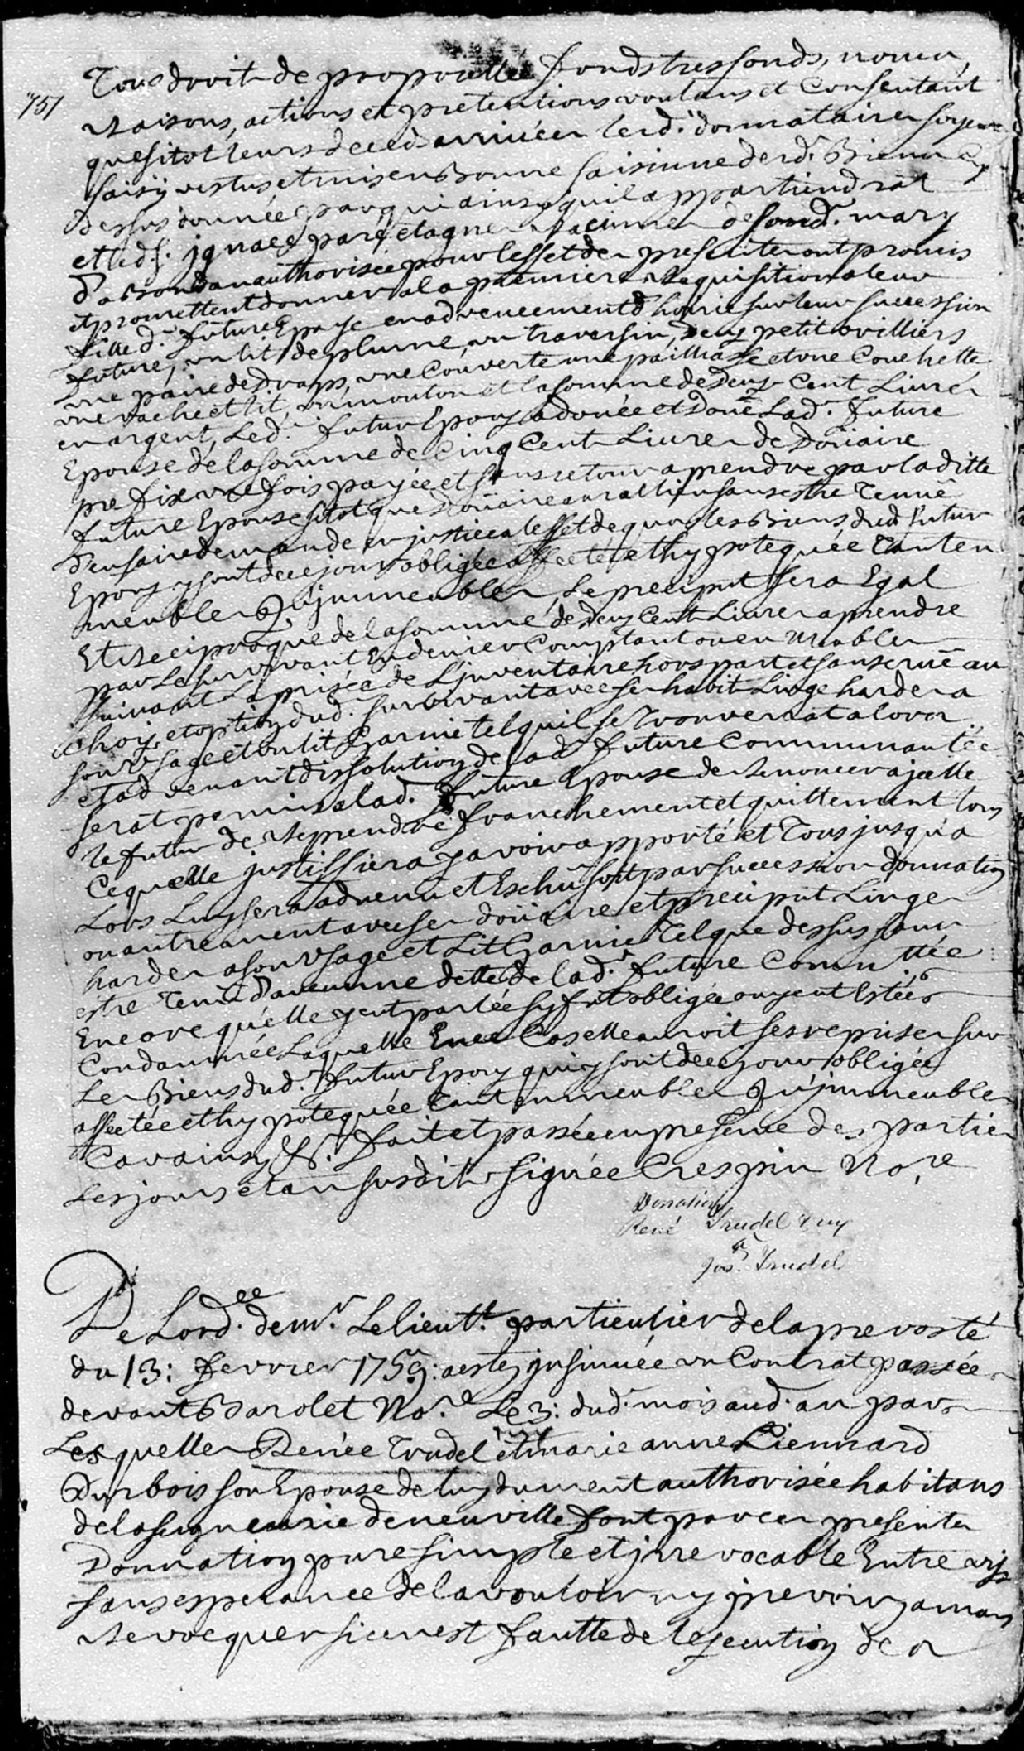 751
Tous droit de proprietté fonds tres fonds, noms,
Raisons, actions et pretentions voulans et Consentant
que sitot leurs deced arrivéer led. donnataire soyent
saisÿ vestus et mis en Bonne saisinne desd. Biens Cy
Dessus donnée par qui ainsy quil appartiendrat
et led. s. jgnace paré et agnes Vacines de sond. mary
d'abondan authorisée pour leffet des presente ont promis
et promettent donner a la premiere Requisition a leur
fille d. future Epouse en advencement d'hoirie sur leur succession
future, un lit de plume, un traversin, deux petit ovilliers
une paire de draps, une Couverte une pailliasse et une Couchette
une vache et lit, un mouton et la somme de deux Cent Livre
en argent, Led. futur Epoux a douée et doue Lad. future
Epouse de la somme de Cinq Cent Livres de Doüaire
prefix une fois payée et sans retour a prendre par laditte
future Epouse sitot que doüaire aurat lieu sans estre Tenuë
D'en faire demande en justice a leffet de quoy les Biens dud. futur
Epoux y sont de ce jour obligée affectée et hypotequée tant en
meubles qu'jmmeubles, Le preciput sera Egal
Et Reciproque de la somme de deux Cent Livres a prendre
par Le survivant En denier Comptant ou en Meubles
suivant La prisée de L'jnventaire hors part et sans cruë au
choix et option dud. survivant avec ses habit Linge hardes a
son Usage et un lit Garnie tel quil se trouverat alors
et ad venant dissolution de lad. future Communautée
serat permis a lad. future Epouse de Renoncer a jcelle
le futur de Reprendre franchement et quittement tous
Ce quelle justiffiera y avoir apporté et Tous jusqu'a
Lors Luy sera advenu et Eschu soit par succession donnation
ou autrement avec ses doüaire et preciput Linge
hardes a son Usage et Lit Garnie Tel que dessus sans
estre Tenu d'aucunne dette de lad. future Commttée
Encore qu'elle y eut parlée sy fut obligée ou y eut Estées
Condamnée Laquelle En ce Cas elle auroit ses reprises sur
Les Biens dud. futur Epoux qui y sont de ce jour obligée
affectée et hypotequée tant en meubles qu'jmmeubles
Car ainsy &. fait et passée en presence des partie
Les jours et an susdit signée Crespin No.re
Donation
René Trudel & ux
a
Jos. Trudel
De Lord.ee de mr. Le lieutt. particulier de la prevosté
du 13: fevrier 1759: a esté jnsinuée un Contrat passée
devant Barolet No.re Le 3: dud. mois aud. an par
Lesquelles Renée Trudel et marie anne Liennard
Durbois son Epouse de luy dument authorisée habitans
de la seigneurie de neuville font par ces presente
Donnation pure simple et jrrevocable Entre vifs
sans esperance de la vouloir ny pouvoir jamais
Revocquer si ce n'est fautte de lexecution de